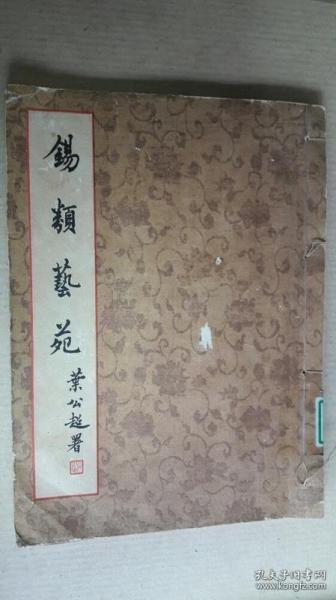 錫類藝苑
葉公超署
孔夫子旧书网
www.kongfz.com